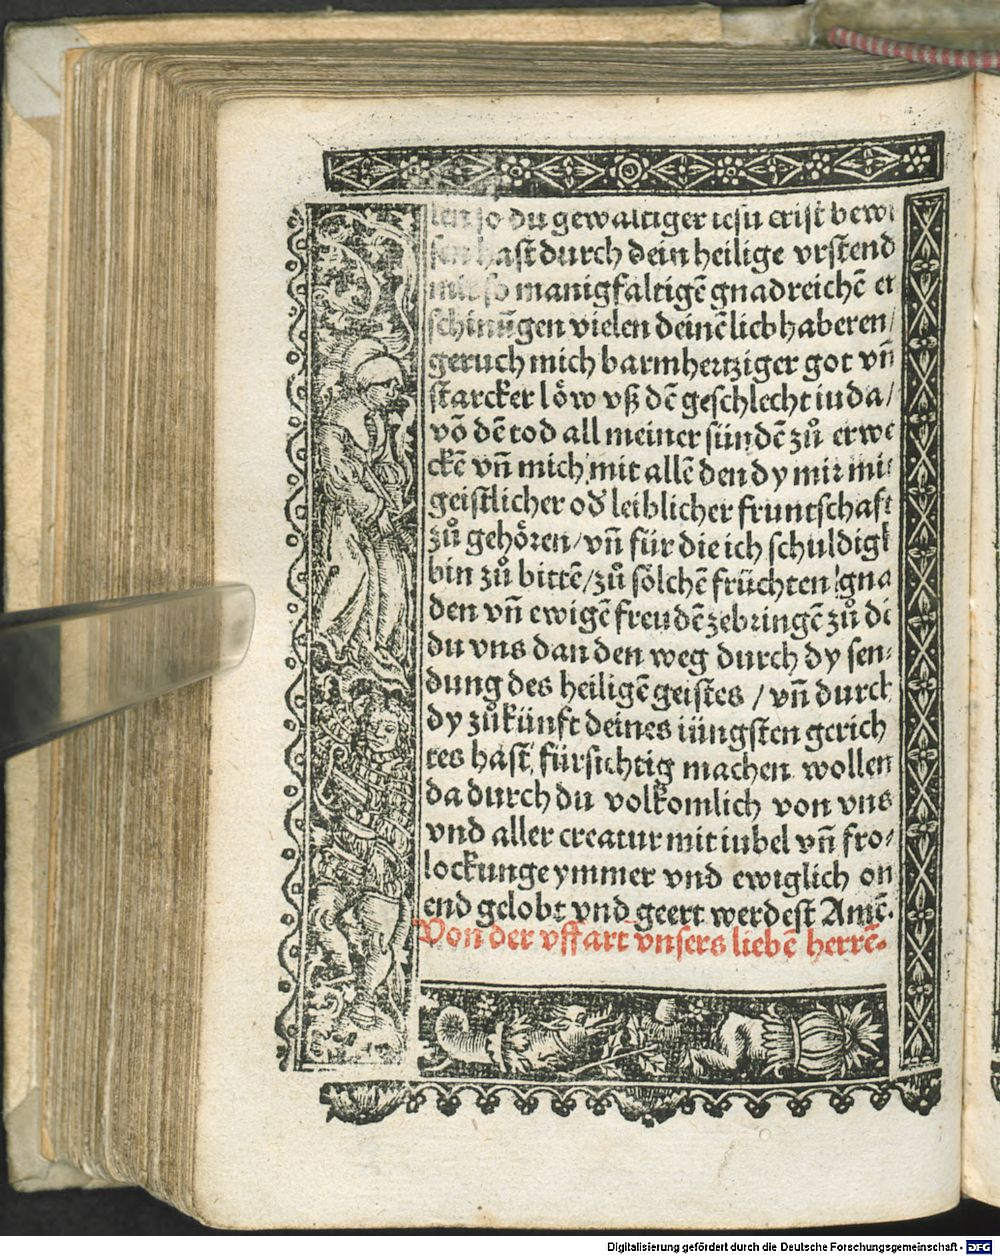 len so du gewaltiger iesu crist bewi
sen hast durch dein heilige vrstend
mit so manigfaltigē gnadreichē er
schinūgen vielen deinē liebhaberen/
geruch mich barmhertziger got vn̄
starcker löw vß dē geschlecht iuda/
vō dē tod all meiner sündē zů erwe
ckē vn̄ mich mit allē den dy mir mit
geistlicher od̕ leiblicher fruntschaft
zů gehören/vn̄ für die ich schuldig
bin zů bittē/zů sölchē früchten gna
den vn̄ ewigē freudē zebringē zů dē
du vns dan den weg durch dy sen⸗
dung des heiligē geistes / vn̄ durch
dy zůkünft deines iüngsten gerich
tes hast fürsichtig machen wollen
da durch du volkomlich von vns
vnd aller creatur mit iubel vn̄ fro⸗
lockunge ymmer vnd ewiglich on
end gelobt vnd geert werdest Amē.
Von der vffart vnsers liebē herrē.
Digitalisierung gefördert durch die Deutsche Forschungsgemeinschaft - DFG